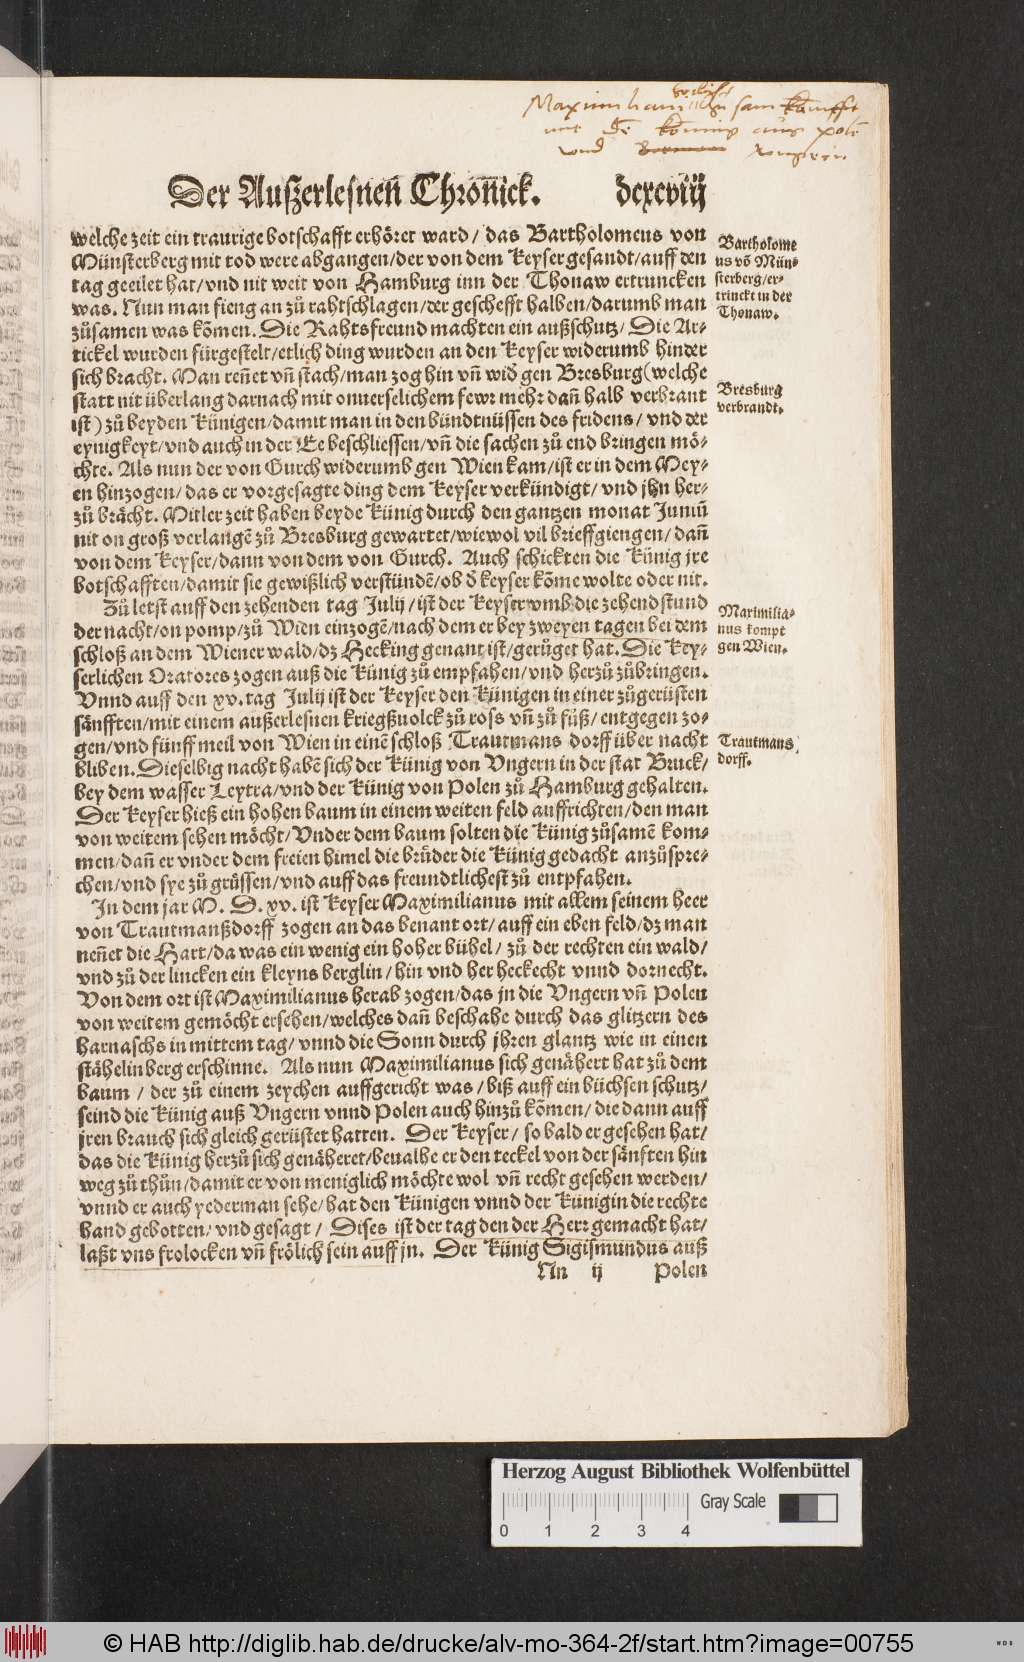 Maximilian
mit dē König aus polē
vnd vngern
Der Außerlesnen̄ Chron̄ick. dcxcviij
welche zeit ein traurige botschafft erhöret ward / das Bartholomeus von
Münsterberg mit tod were abgangen/der von dem Keyser gesandt/auff den
tag geeilet hat/vnd nit weit von Hamburg inn der Thonaw ertruncken
was. Nun man fieng an zů rahtschlagen/der geschefft halben/darumb man
zůsamen was kōmen. Die Rahtsfreund machten ein außschutz/ Die Ar-
tickel wurden fürgestelt/etlich ding wurden an den Keyser widerumb hinder
sich bracht. Man ren̄et vn̄ stach/man zog hin vn̄ wid̄ gen Bresburg(welche
statt nit überlang darnach mit onuerselichem fewr mehr dan̄ halb verbrant
ist) zů beyden Künigen/damit man in den bündtnüssen des fridens/ vnd der
eynigkeyt/vnd auch in der Ee beschliessen/vn̄ die sachen zů end bringen mö-
chte. Als nun der von Gurch widerumb gen Wien kam/ist er in dem Mey-
en hinzogen/das er vorgesagte ding dem Keyser verkündigt/ vnd jhn her-
zů brächt. Mitler zeit haben beyde Künig durch den gantzen monat Junin̄
nit on groß verlangē zů Bresburg gewartet/wiewol vil brieff giengen/ dan̄
von dem Keyser/dann von dem von Gurch. Auch schickten die Künig jre
botschafften/damit sie gewißlich verstündē/ob d̄ keyser kōme wolte oder nit.
Zů letst auff den zehenden tag Julij/ist der Keyser vmb die zehend stund
der nacht/on pomp/zů Wien einzogē/nach dem er bey zweyen tagen bei dem
schloß an dem Wienerwald/dz Hecking genant ist/gerůget hat. Die Key-
serlichen Oratores zogen auß die Künig zů empfahen/vnd herzů zůbringen.
Vnnd auff den xv. tag Julij ist der Keyser den Künigen in einer zůgerüsten
sänfften/mit einem außerlesnen kriegßuolck zů ross vn̄ zů fůß/ entgegen zo-
gen/vnd fünff meil von Wien in einē schloß Trautmans dorff über nacht
bliben. Dieselbig nacht habē sich der Künig von Vngern in der stat Bruck/
bey dem wasser Leytra/vnd der Künig von Polen zů Hamburg gehalten.
Der Keyser hieß ein hohen baum in einem weiten feld auffrichten/den man
von weitem sehen möcht/Vnder dem baum solten die Künig zůsamē kom-
men/dan̄ er vnder dem freien himel die brüder die Künig gedacht anzůspre-
chen/vnd sye zů grüssen/vnd auff das freundtlichest zů entpfahen.
In dem jar M. D. xv. ist Keyser Maximilianus mit allem seinem heer
von Trautmanßdorff zogen an das benant ort/ auff ein eben feld/dz man
nen̄et die Hart/da was ein wenig ein hoher bühel/ zů der rechten ein wald/
vnd zů der lincken ein kleyns berglin/hin vnd her heckecht vnnd dornecht.
Von dem ort ist Maximilianus herab zogen/das jn die Vngern vn̄ Polen
von weitem gemöcht ersehen/welches dan̄ beschahe durch das glitzern des
harnaschs in mittem tag/ vnnd die Sonn durch jhren glantz wie in einen
stähelin berg erschinne. Als nun Maximilianus sich genähert hat zů dem
baum / der zů einem zeychen auffgericht was / biß auff ein büchsen schutz/
seind die Künig auß Vngern vnnd Polen auch hinzů kōmen/die dann auff
jren brauch sich gleich gerüstet hatten. Der Keyser/ so bald er gesehen hat/
das die Künig herzů sich genäheret/beualhe er den teckel von der sänften hin
weg zů thůn/damit er von meniglich möchte wol vn̄ recht gesehen werden/
vnnd er auch yederman sehe/hat den Künigen vnnd der Künigin die rechte
hand gebotten/vnd gesagt / Dises ist der tag den der Herr gemacht hat/
laßt vns frolocken vn̄ frölich sein auff jn. Der Künig Sigismundus auß
Nn ij Polen
Bartholome
us vō Mün-
sterberg/er-
trinckt in der
Thonaw.
Bresburg
verbrandt.
Maximilia-
nus kompt
gen Wien.
Trautmans
dorff.
Herzog August Bibliothek Wolfenbüttel
Gray Scale
0 1 2 3 4
© HAB http://diglib.hab.de/drucke/alv-mo-364-2f/start.htm?image=00755